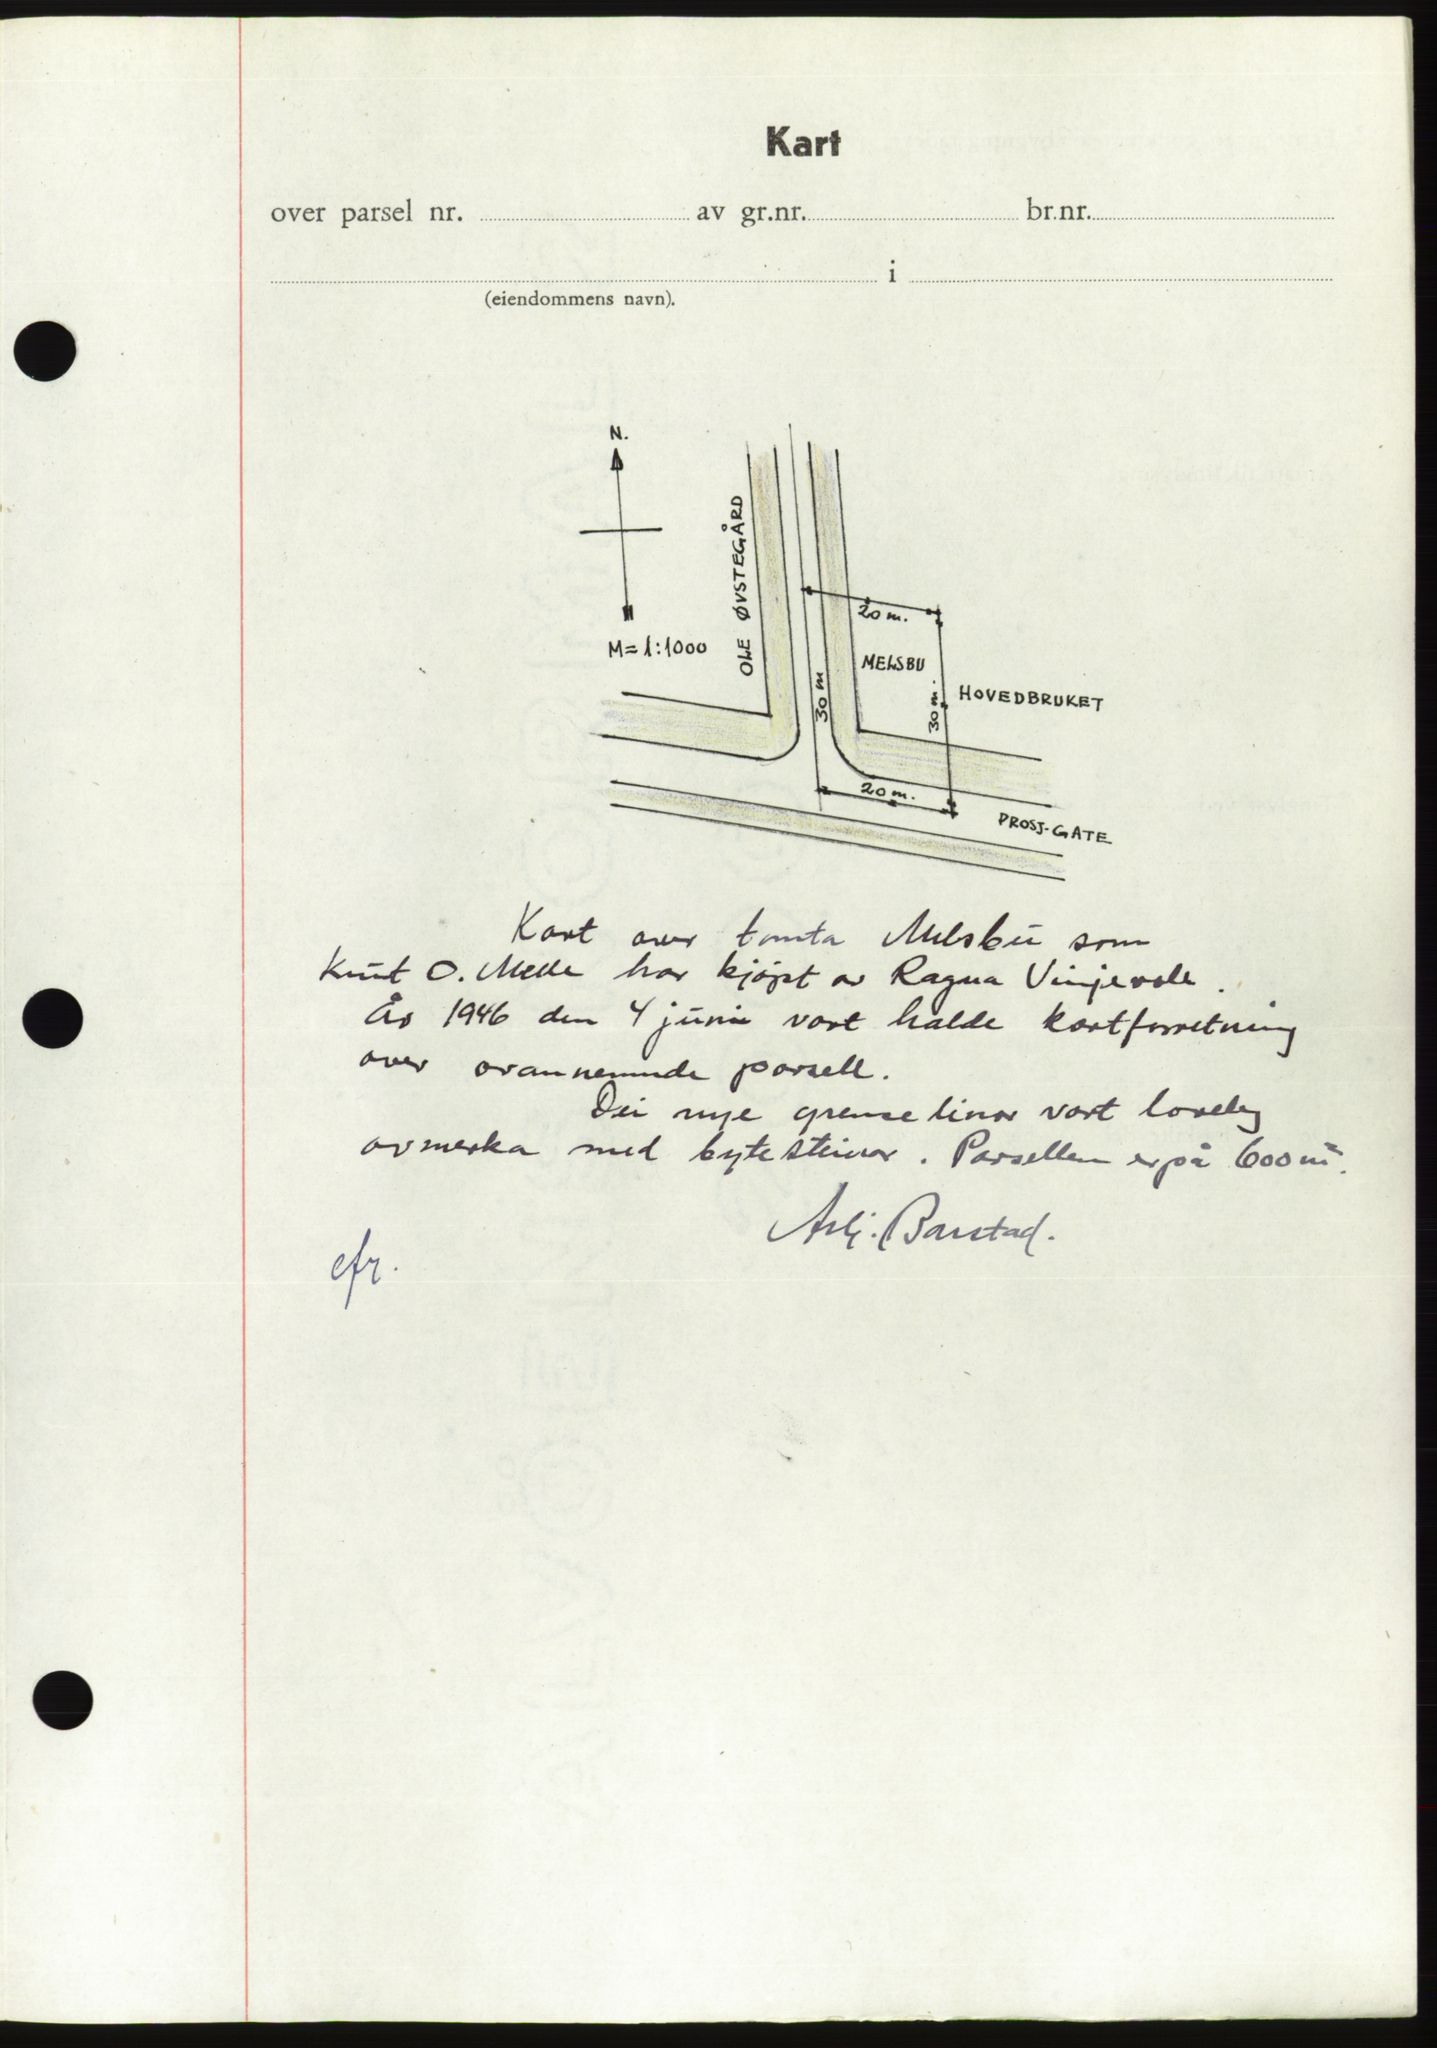 Kart
over parsel nr. av gr.nr. br.nr.
i
(eiendommens navn).
N.
OLE ØVSTEGÅRD
20 m.
M=1:1000
MELSBU
30 m
30 m.
HOVEDBRUKET
20 m.
PROSJ-GATE
Kart over tomta Melsbu som
Knut O. Melle har kjøpt av Ragna Vinjevoll.
År 1946 den 4 juni vart halde kartforretning
over ovannemnde parsell.
Dei nye grenselinor vart lovleg
avmerka med bytesteinar. Parsellen er på 600 m².
Barstad.
cfr.